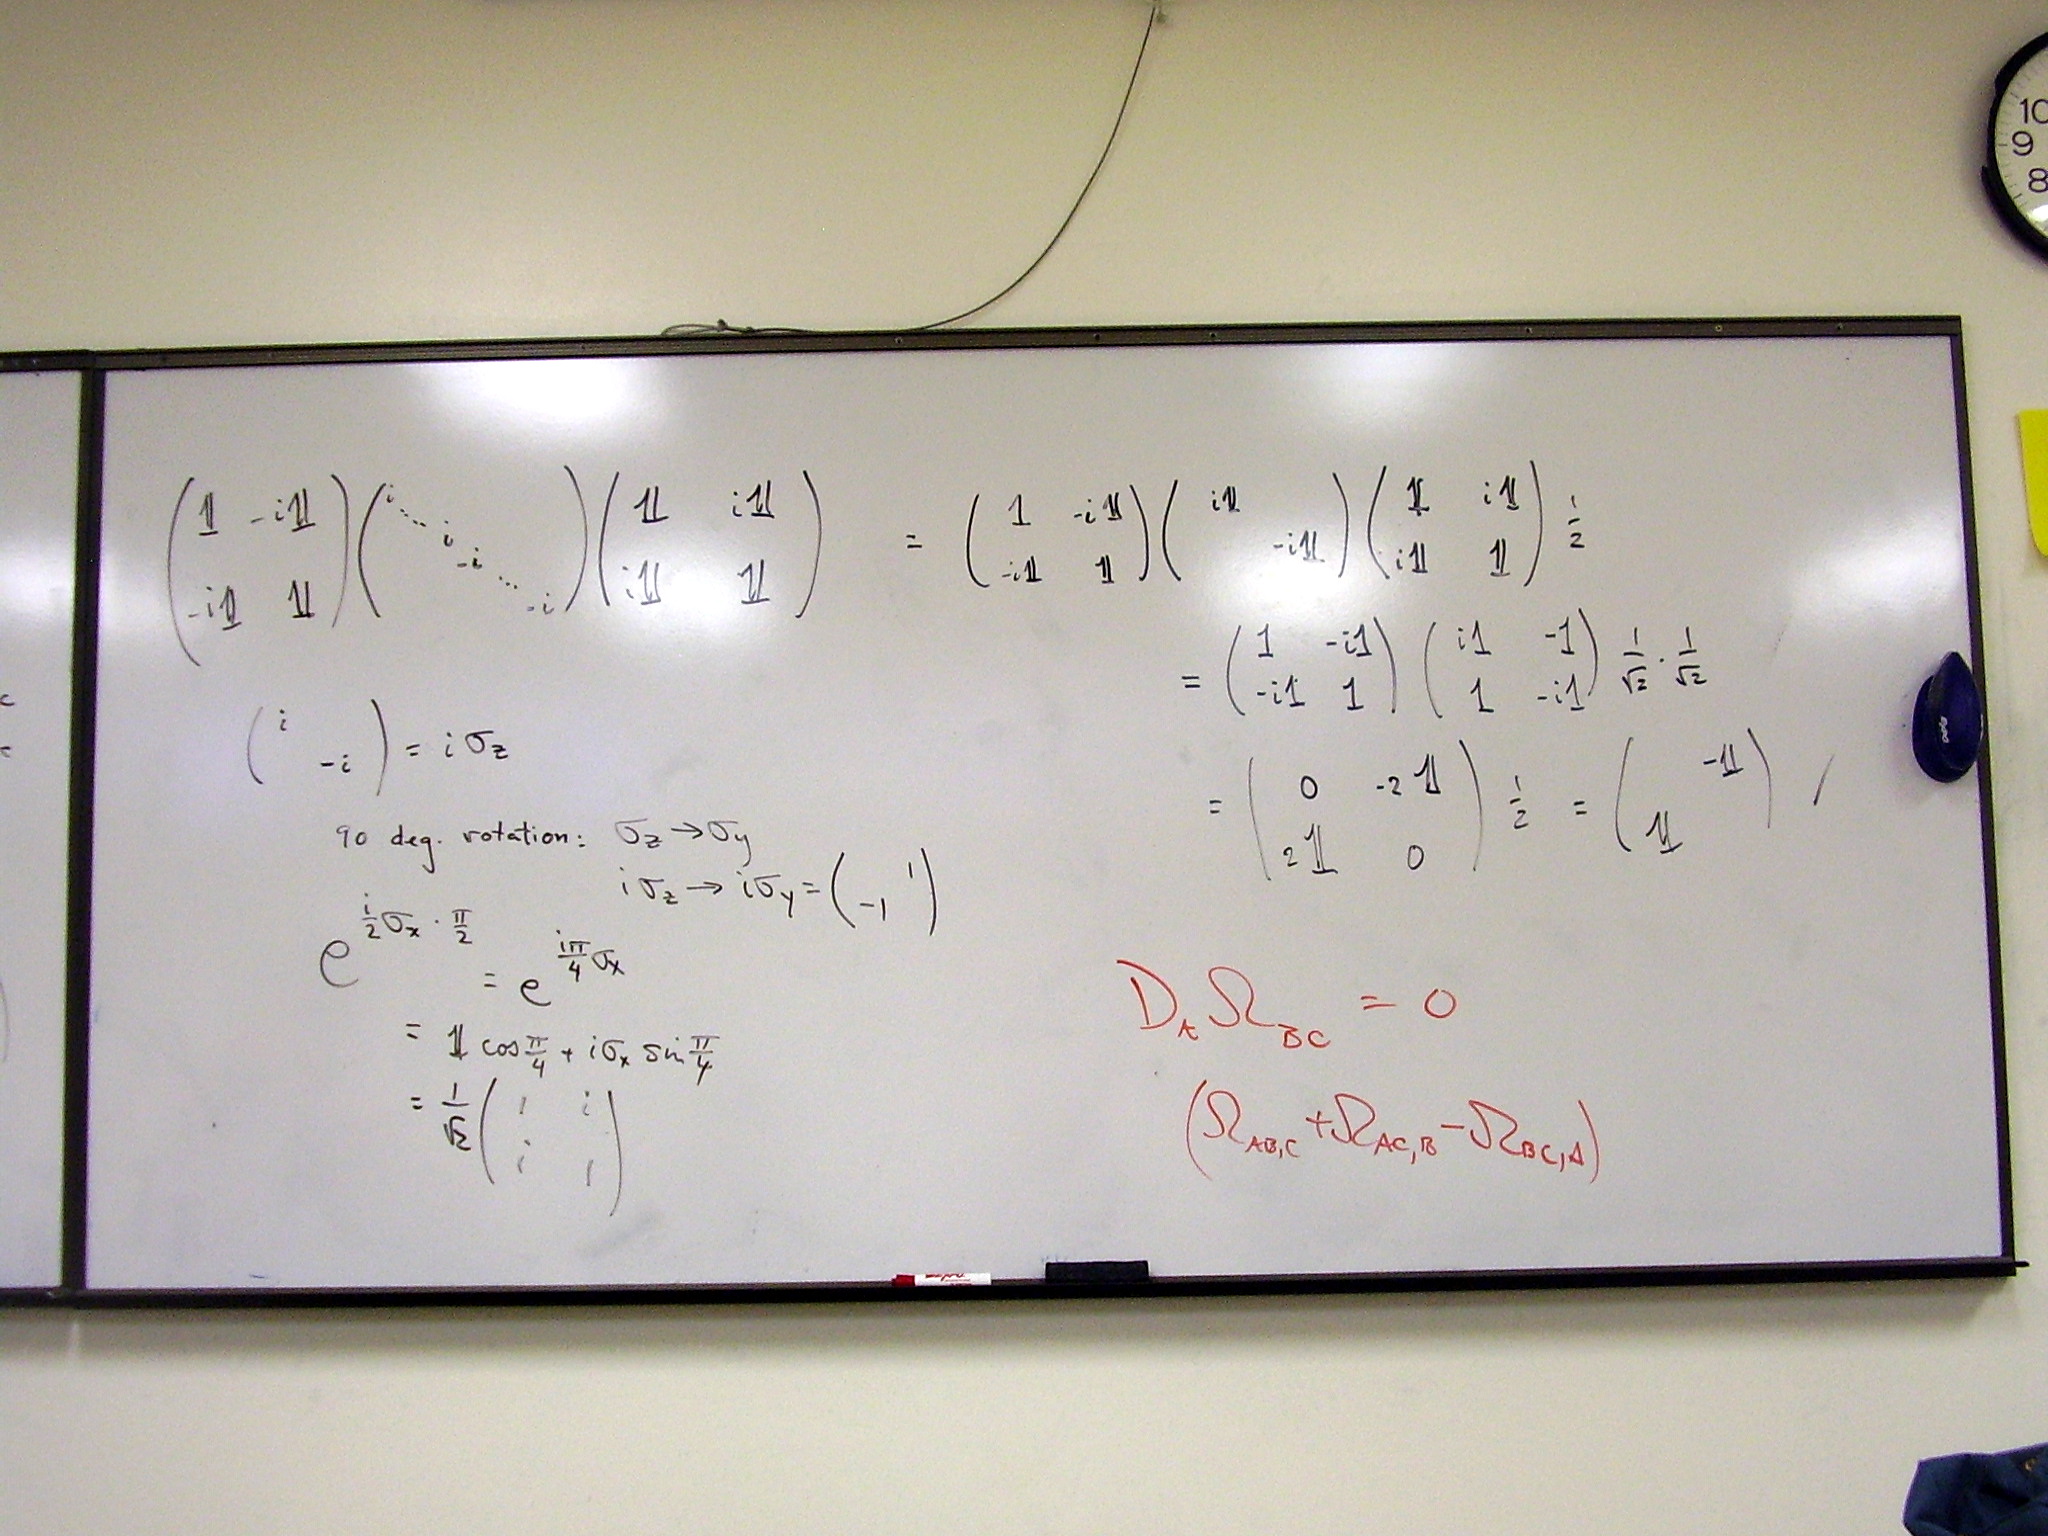 ( 𝟙 -i𝟙 ; -i𝟙 𝟙 ) ( i ... i -i ... -i ) ( 𝟙 i𝟙 ; i𝟙 𝟙 ) = ( 1 -i𝟙 ; -i𝟙 𝟙 ) ( i𝟙 ; -i𝟙 ) ( 𝟙 i𝟙 ; i𝟙 𝟙 ) 1/2
= ( 1 -i1 ; -i1 1 ) ( i1 -1 ; 1 -i1 ) 1/√2 · 1/√2
= ( 0 -2𝟙 ; 2𝟙 0 ) 1/2 = ( -𝟙 ; 𝟙 )
( i ; -i ) = iσz
90 deg. rotation: σz → σy
iσz → iσy = ( 1 ; -1 )
e^(i/2 σx · π/2) = e^(iπ/4 σx)
= 𝟙 cos π/4 + iσx sin π/4
= 1/√2 ( 1 i ; i 1 )
D_A Ω_BC = 0
(Ω_AB,C + Ω_AC,B - Ω_BC,A)
10
9
8